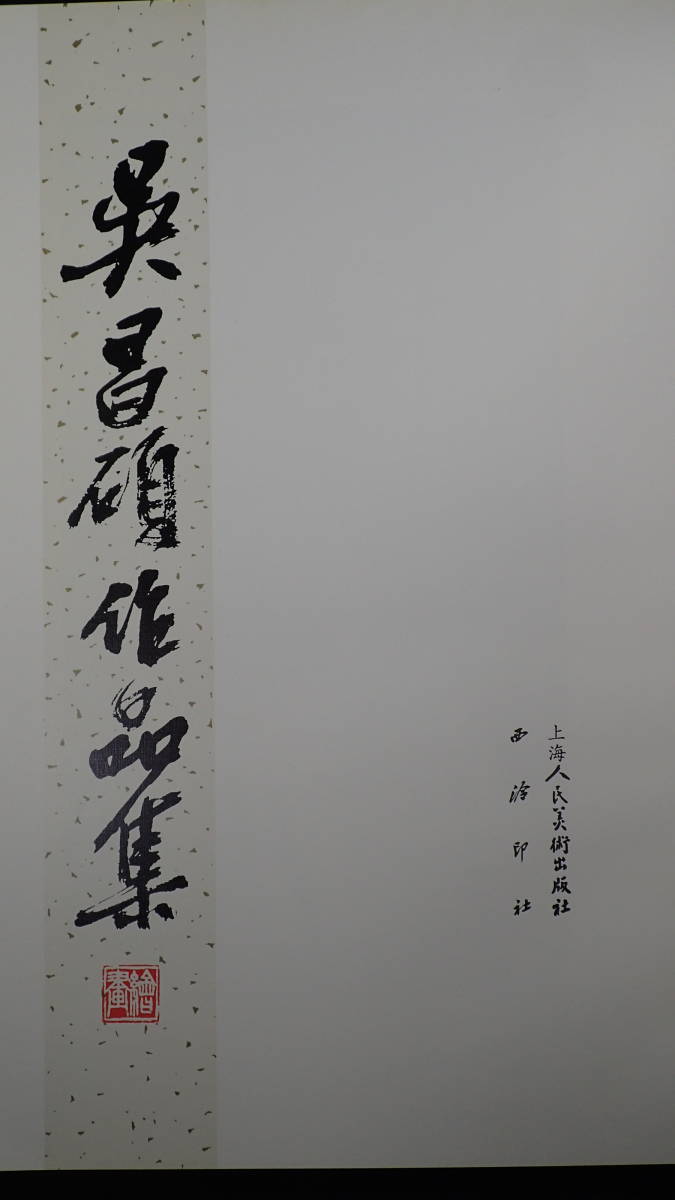 吳昌碩作品集
繪畫
上海人民美術出版社
西泠印社